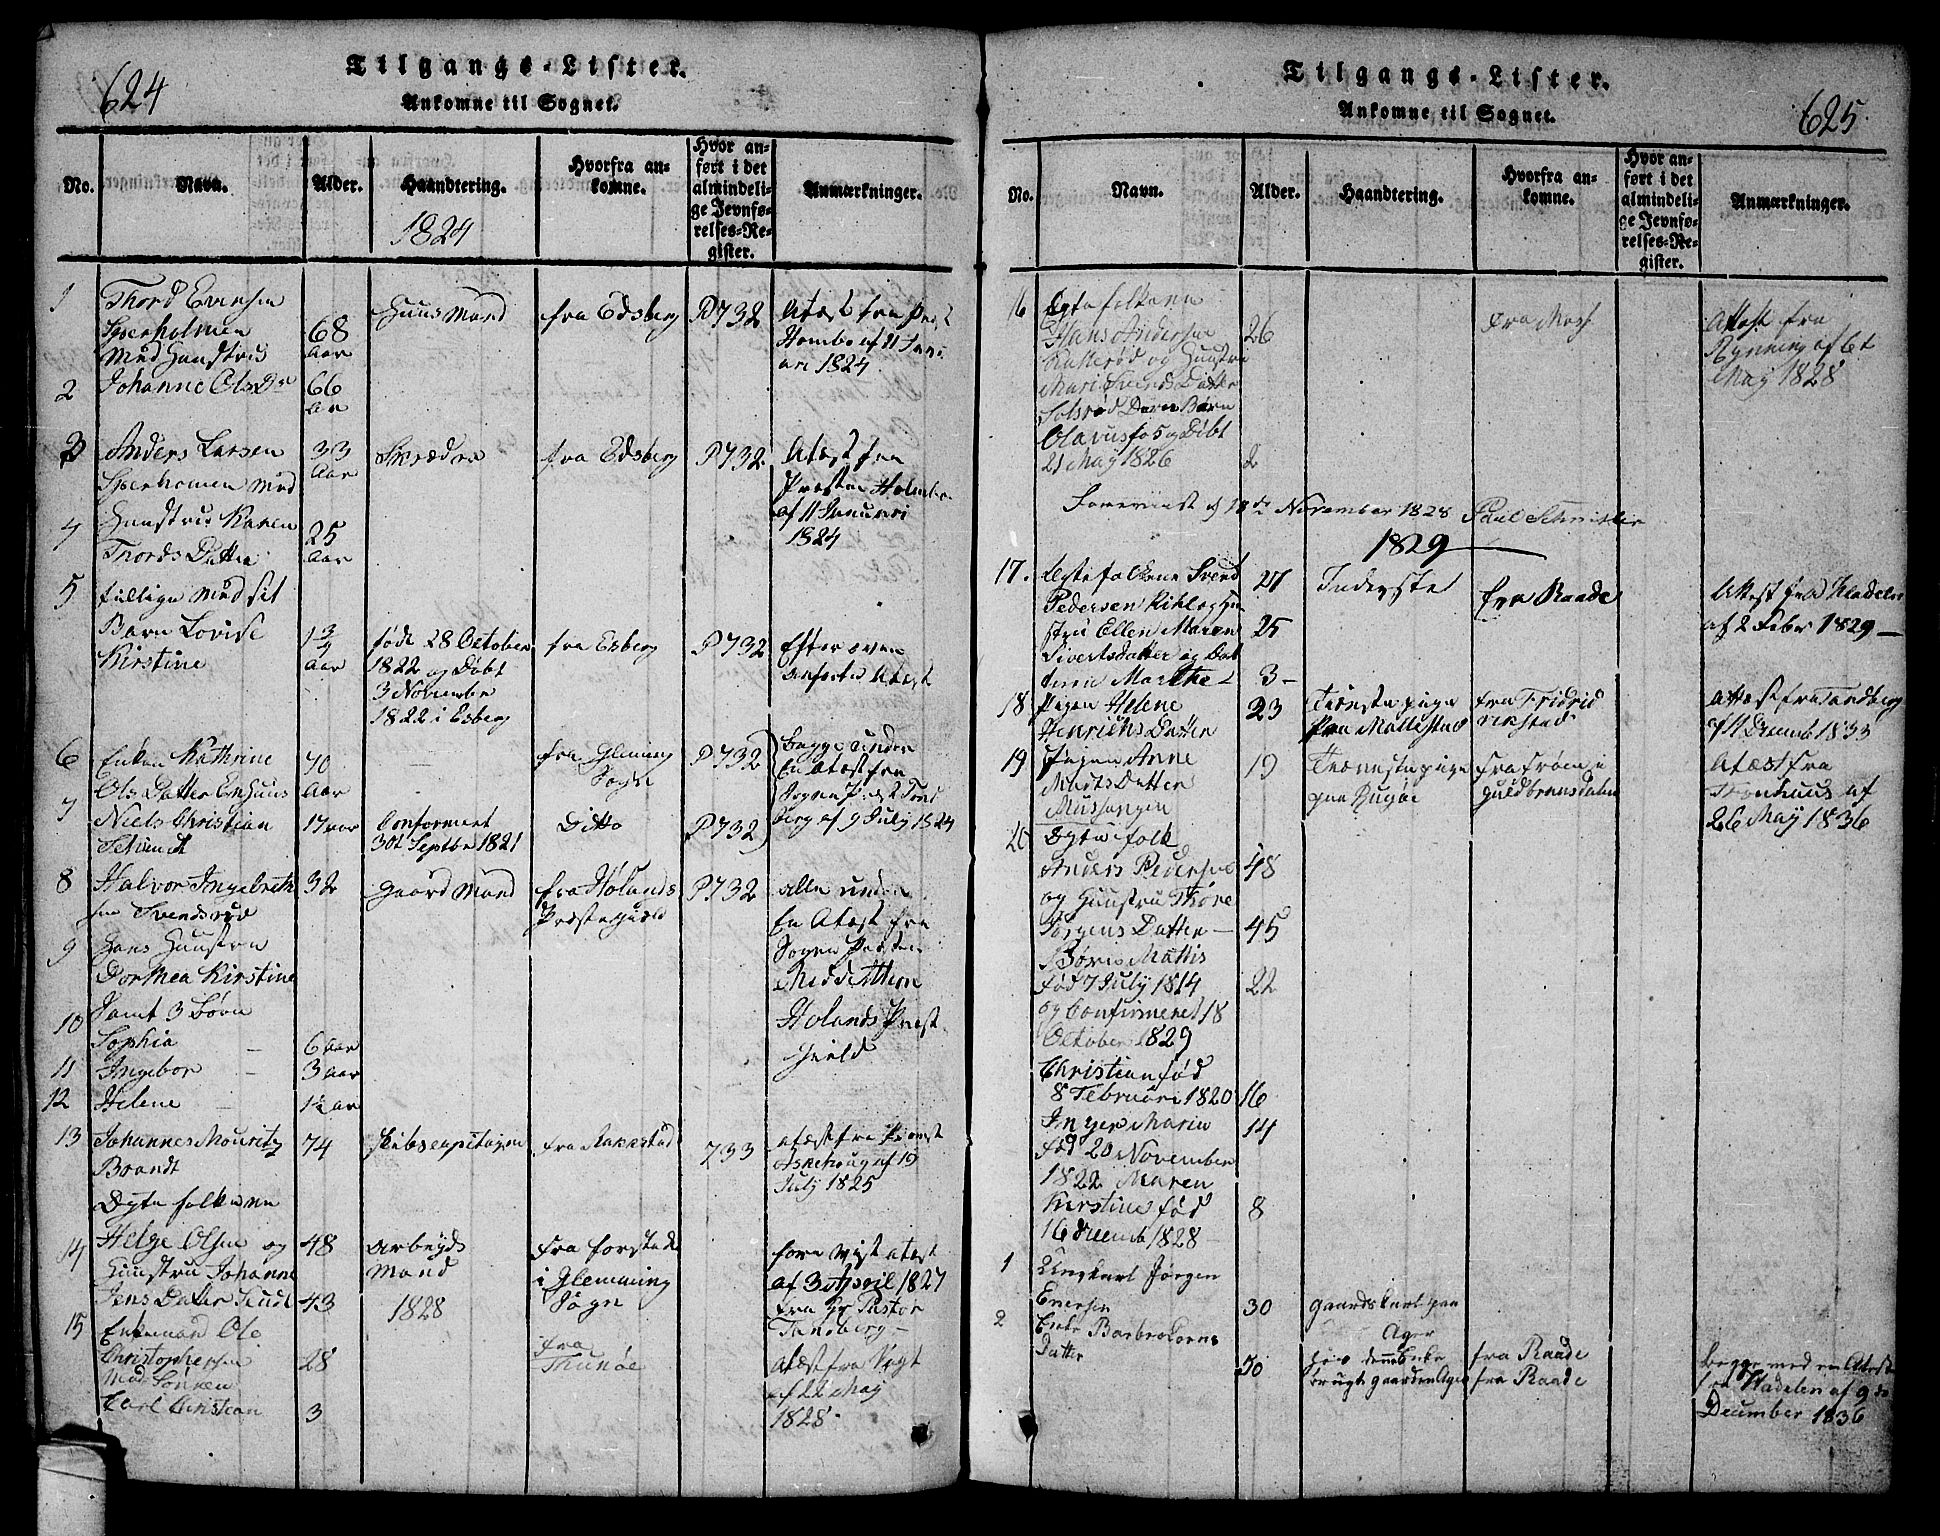 624
Tilgangs-Lister.
Ankomne til Sognet.
No.
Navn.
Alder.
Haandtering.
Hvorfra an-
komne.
Hvor an-
ført i det
almindeli-
ge Jevnfø-
relses-Re-
gister.
Anmærkninger.
1824
1
Thord Evensen
68
Aar
Huusmand
fra Edsberg
P732
Atæst fra Præst
af 11 Janu
ari 1824
2
Johanne Ols Dr
66
Aar
3
Anders Larsen
33
Aar
Skrædder
fra Edsberg
P732
Atæst fra
Præsten Holmbo
af 11 Januari
1824
4
Hunstru Karen
Thords Datter
25
Aar
5
tillige med sit
Barn Lovise
Kirstine
1 3/4
Aar
føde 28 October
1822 og Døbt
3 November
1822 i Esberg
fra Esberg
P732
Efter oven
anførte Atæst
6
Enken Kathrine
Ols Datter Enhuus
70
Aar
fra Gleming
Sogn
P732
Begge under
En Atæst fra
Sogne Præst Tand
berg af 9 July 1824
7
Niels Christian
Schmidt
17 aar
Confermert
30t Septbr 1821
Ditto
P732
8
Halvor Ingebreth
sen Svendsrud
32
Gaardmand
fra Hølands
Præstegield
P732
alle under
En Atæst fra
Sogne Præsten
Høllands Præst
Gield
9
Hans Huustru
Dorthea Kirstine
Samt 3 Børn
10
Sophia
6 Aar
11
Ingebor
3 Aar
12
Helene
1 1/2 Ar
13
Johannes Mouritz
Brandt
74
Skibscapitayn
fra Rakkestad
733
atæst fra Provst
Askehoug af 19
July 1825
Egte folkene
14
Helge Olsen og
Huustru Johanne
Jens Dater
48
43
Arbeyds
Mand
fra Forstaden
i Glemming
Sogn
fore vist atest
af 3 April 1827
fra Hr Pastor
Tandberg
1828
15
Enkemand Ole
Christophersen
Med Sønnen
Carl Christian
28
3
fra
Thunøe
Atæst fra Vogt
af 22 May
1828
Tilgangs-Lister.
Ankomne til Sognet.
625
No.
Navn.
Alder.
Haandtering.
Hvorfra an-
komne.
Hvor an-
ført i det
almindeli-
ge Jevnfø-
relses-Re-
gister.
Anmærkninger.
16
Egtefolkene
Hans Andersen
26
Kallerød og Huustru
Mari Svends Datter
Solsrød Deres Børn
Olavus
21 May 1826
2
fra Moss
Attest fra
Rynning af 6t
May 1828
Foreviist d 18de November 1828
1829
17.
Egtefolkene Svend
Pedersen Kihl og Hu
stru Ellen Maren
Sivertsdatter og Dat
teren Marthe
27
25
3
Inderste
fra Raade
Attest fra Hadeln
af 2 Febr 1829
18
Pigen Helene
Henrichs Datter
23
Tienstepige
paa Mallestad
fra Fridrid
rikstad
Attest fra Tandberg
af 11 Decemb 1833
19
Pigen Anne
Madts Datter
19
Tienestepige
paa Rygge
fra Frøen i
Guldbransdalen
Atæst fra
af
26 May 1836
20
Egte folk
Anders Pedersen
48
og Huustru Thore
Jørgens Datter
45
Børn Mattis
fød 7 July 1814
22
og Confirmeret 18
October 1829
Christian fød
8 Februari 1820
16
Inger Marie
14
fød 20 November
1822 Maren
Kirstine fød
8
16 Decemb 1828
1
Ungkarl Jørgen
Enersen
30
Gaardskarl paa
Ager
fra Raade
2
Enke Barbro
Datter
50
denne Enke
brugt gaarden Ager
fra Raade
Begge med en Atest
fra Hadelen af 9 de
December 1836